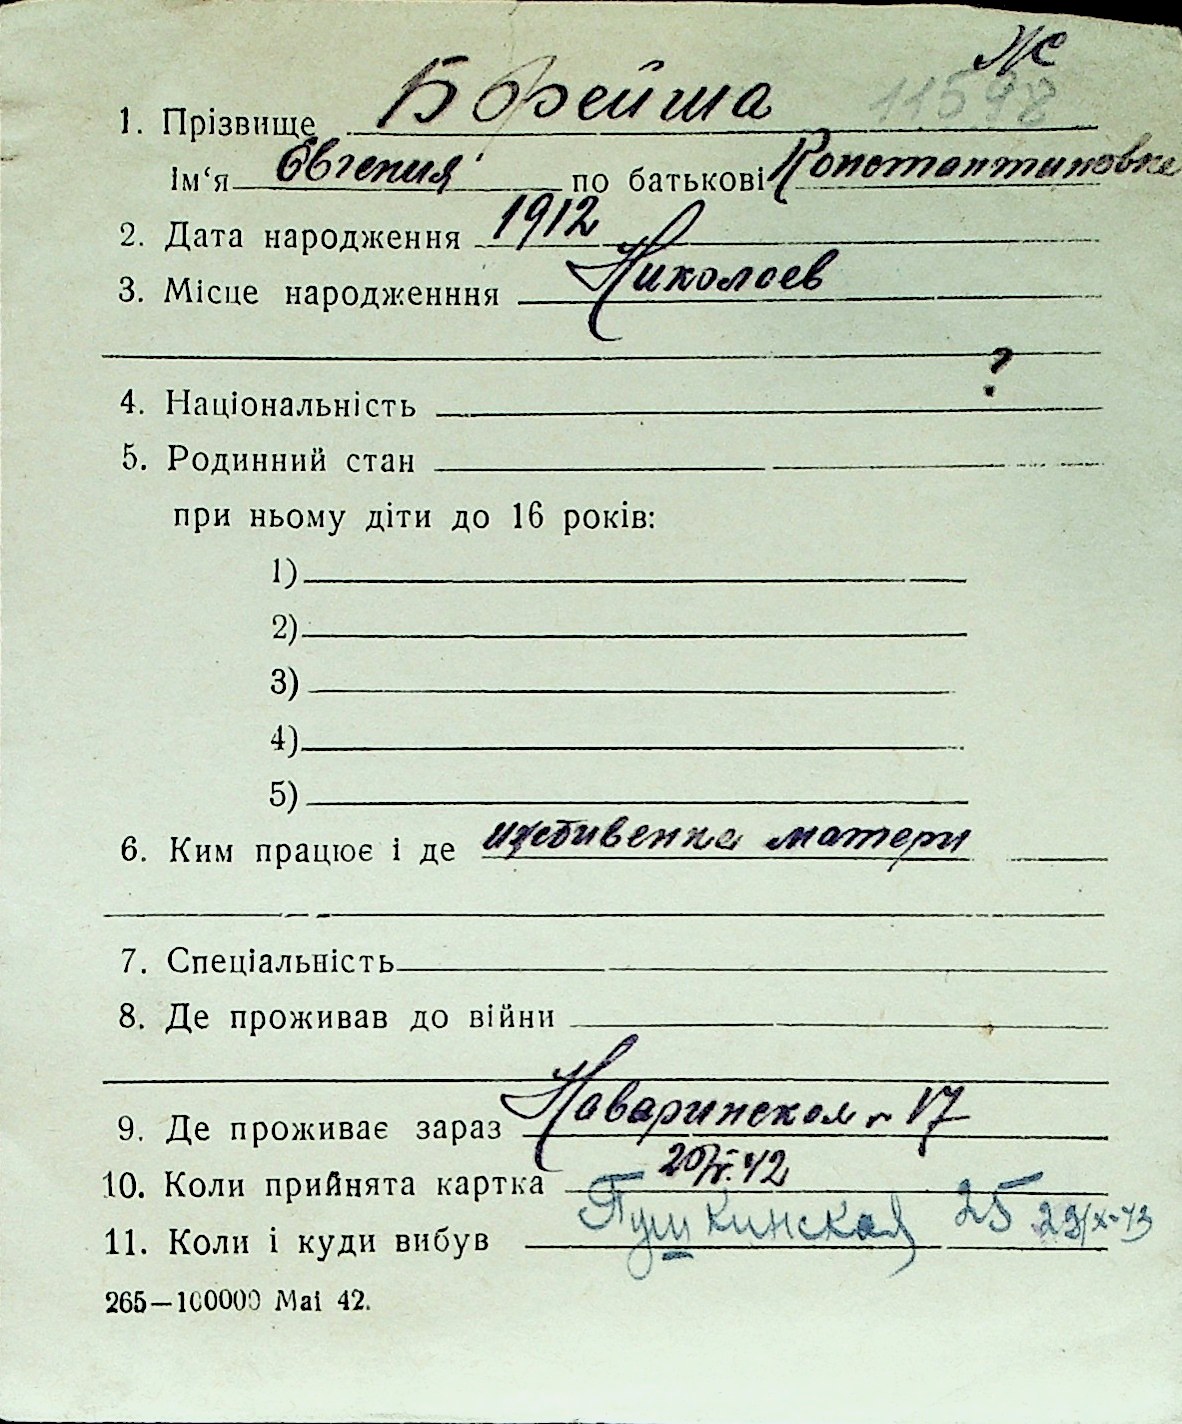 Ж
11598
1. Прізвище Борейша
Ім‘я Евгения по батькові Константиновна
2. Дата народження 1912
3. Місце народженння Николаев
?
4. Національність
5. Родинний стан
при ньому діти до 16 років:
1)
2)
3)
4)
5)
6. Ким працює і де иждивенка матери
7. Спеціальність
8. Де проживав до війни
9. Де проживає зараз Наваринская 17
10. Коли прийнята картка 20/V.42
11. Коли і куди вибув Пушкинская 25 23/X-43
265—100000 Mai 42.